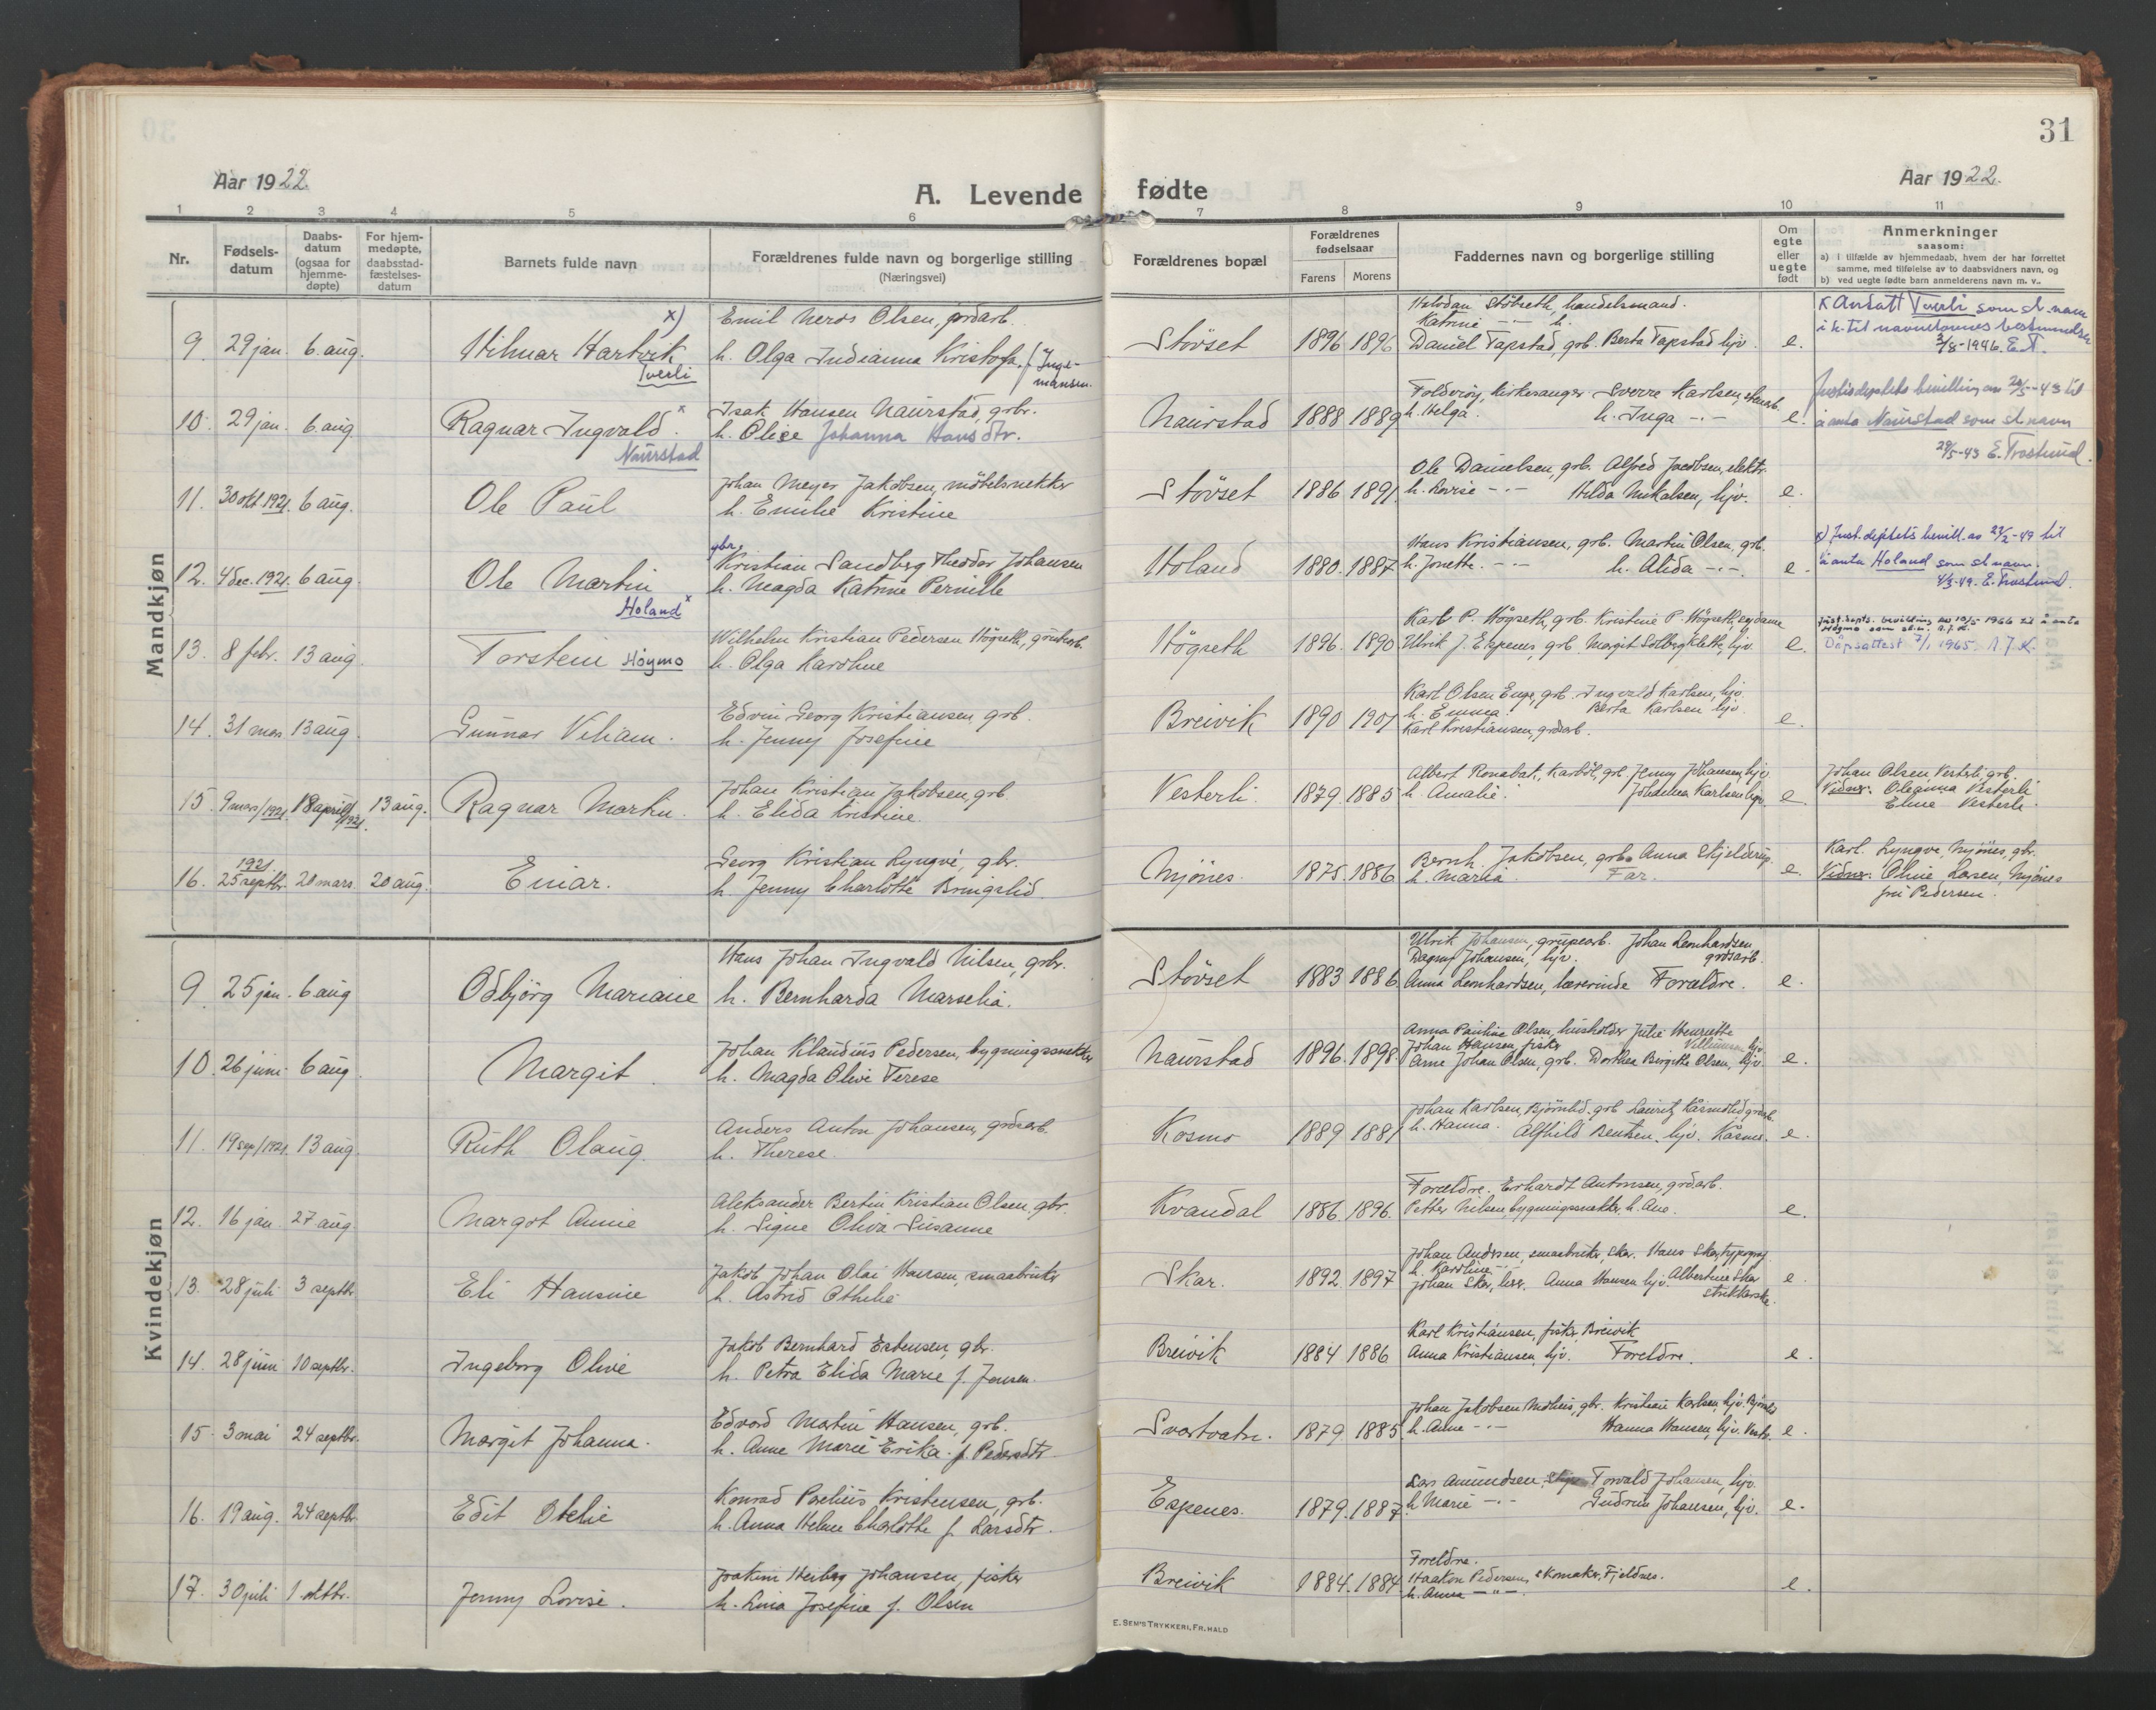 31
Aar 1922.
A. Levende fødte
Aar 1922.
1 2 3 4 5 6 7 8 9 10 11
Nr.
Fødsels-
datum
Daabs-
datum
(ogsaa for
hjemme-
døpte)
For hjem-
medøpte,
daabsstad-
fæstelses-
datum
Barnets fulde navn
Forældrenes fulde navn og borgerlige stilling
(Næringsvei)
Forældrenes bopæl
Forældrenes
fødselsaar
Farens Morens
Faddernes navn og borgerlige stilling
Om
egte
eller
uegte
født
Anmerkninger
saasom:
a) i tilfælde av hjemmedaab, hvem der har forrettet
samme, med tilføielse av to daabsvidners navn, og
b) ved uegte fødte barn anmelderens navn m. v..
Mandkjøn
9. 29 jan. 6. aug. Hilmar Hartvik x)
Tverli
Emil Olsen, grdarb.
h. Olga Indianna Kristofa. f. Inge-
mansen.
Støvset 1896 1896
Halvdan Støvseth, handelsmand.
Katrine -"- h.
Daniel Tapstad, grb. Berta Tapstad hjv. e.
x Antatt Tverli som sl. navn
i h. til navnelovens bestemmelse
3/8-1946. E.T.
10. 29 jan. 6. aug. Ragnar Ingvald. x
Naurstad
Isak Hansen Naurstad, grbr.
h. Olise Johanna Hansdtr.
Naurstad 1888 1889
Foldvoy, kirkesanger Sverre Karlsen,
h. Helga. h. Inga -.- e.
Justisdepartets bevilling av 20/5-43 til
å anta Naurstad som sl. navn
29/5-43 E. Trostrud.
11. 30 okt 1921. 6 aug. Ole Paul
Johan Meyer Jakobsen, møbelsnekker
h. Emilie Kristine
Støvset 1886. 1891.
Ole Danielsen, grb. Alfred Jacobsen, elektr.
h. Lovise -.- Hilda Mikalsen, hjv. e.
12. 4 dec. 1921. 6 aug. Ole Martin
Holand x
gbr.
Kristian Sandberg Theodor Johansen
h. Magda Katrine Pernille
Holand 1880. 1887.
Hans Kristiansen, grb. Martin Olsen, grb.
h. Jonette. -.- h. Alida -.-. e.
x) Just.deptets bevill. av 23/2-49 til
å anta Holand som sl. navn.
4/3-49. E. Trostrud.
13. 8 febr. 13 aug. Torstein Høymo
Wilhelm Kristian Pedersen Högseth, grubearb.
h. Olga Karoline
Högseth 1896. 1890
Karl P. Högseth, grb. Kristine P. Högseth,
Ulrik J. Espenes, grb. Margit Solberg Klette, hjv. e.
Just.depts. bevilling av 10/5 1966 til å anta
Høymo som sl.n. A.J.K.
Dåpsattest 7/1 1965. A.J.K.
14. 31 mars 13 aug. Gunnar Viliam.
Edvin Georg Kristiansen, grb.
h. Jenny Josefine
Breivik 1890 1901
Karl Olsen Enge, grb. Ingvald Karlsen, hjv.
h. Emma. Berta Karlsen hjv.
Karl Kristiansen, grdarb. e.
15. 9 mars 1921. 18 april 1921. 13 aug. Ragnar Martin.
Johan Kristian Jakobsen, grb
h. Elida Kristine.
Vesterli. 1879. 1885
Albert Ronabat, Karbøl, grb. Jenny Johansen, hjv.
h. Amalie. Johanna Karlsen hjv. e.
Johan Olsen, Vesterli, grb.
Vidner: Oleanna Vesterli
Eline Vesterli.
16. 1921
25 septbr. 20 mars 20 aug. Einar.
Georg Kristian Lyngve, gbr.
h. Jenny Charlotte Bringslid.
Nyönes. 1875. 1886
Bernh. Jakobsen, grb. Anna Skjelderup.
h. Maria. Far. e.
Karl. Lyngve, Nyönes, gbr.
Vidner: Oline Larsen, Nyönes
fru Pedersen.
Kvindekjøn
9. 25 jan. 6 aug Odbjörg Mariane
Hans Johan Ingvald Nilsen, grbr.
h. Bernharda Marselia.
Støvset 1883 1886
Ulrik Johansen, grubearb. Johan Leonhardsen,
Dagny Johansen, hjv. grdsarb.
Anna Leonhardsen, lærerinde Forældre. e.
10. 26 juni 6 aug. Margit.
Johan Klaudius Pedersen, bygningssnekker
h. Magda Olivi Terese
Naurstad 1896. 1898
Anna Pauline Olsen, husholder Julie Henriette
Johan Hansen, fisker Villumsen hjv.
Arne Johan Olsen, grb. Dorthea Birgitte Olsen, hjv. e.
11. 19 sep/1921. 13 aug. Ruth Olaug.
Anders Anton Johansen, grdsarb.
h. Therese.
Kosmo 1889 1881
Johan Karlsen, Björnlid. grb. Lauritz Kåsmolid grdarb.
h. Hanna. Alfhild Bentzen. hjv. Kåsmo. e.
12. 16 jan. 27 aug. Margot Annie
Aleksander Bertin Kristian Olsen, gbr.
h. Signe Oliva Susanne
Kvandal 1886. 1896.
Forældre. Erhardt Antonsen, grdarb.
Petter Nilsen, bygningssnekker, h. Ane. e.
13. 28 juli 3 septbr. Eli Hansine
Jakob Johan Olai Hansen, smaabruker
h. Astrid Othelie
Skar. 1892 1897
Johan Andersen, smaabruker, Skar. Hans Skar, typograf
h. Karoline -.-
Johan Skar, Anna Hansen hjv. Albertine Skar
strikkerske. e.
14. 28 juni 10 septbr. Ingeborg Olive
Jakob Bernhard Estensen, gbr.
h. Petra Elida Marie f. Jensen.
Breivik 1884 1886
Karl Kristiansen, fisker, Breivik
Anna Kristiansen, hjv. Foreldre. e.
15. 3 mai 24 septbr. Margit Johanna.
Edvard Martin Hansen, grb.
h. Anne Marie Erika. f. Pedersdtr.
Svartvatn. 1879. 1885
Johan Jakobsen gbr. Kristian Karlsen, hjv.
h. Anne -.- Hanna Hansen, hjv. e.
16. 19 aug. 24 septbr. Edit Otelie
Konrad Parelius Kristensen, grb.
h. Anna Helene Charlotte f. Larsdtr.
Espenes. 1879. 1887.
Lars Amundsen, Torvald Johansen, hjv.
h. Marie -.- Gudrun Johansen, hjv. e.
17. 30 juli 1 oktbr. Jenny Lovise.
Joakim Heiberg Johansen, fisker
h. Lina Josefine f. Olsen
Breivik 1884. 1884.
Foreldre.
Haakon Pedersen, skomaker, Fjeldnes.
h. Anna -"-. e.
E. SEM'S TRYKKERI, FR.HALD